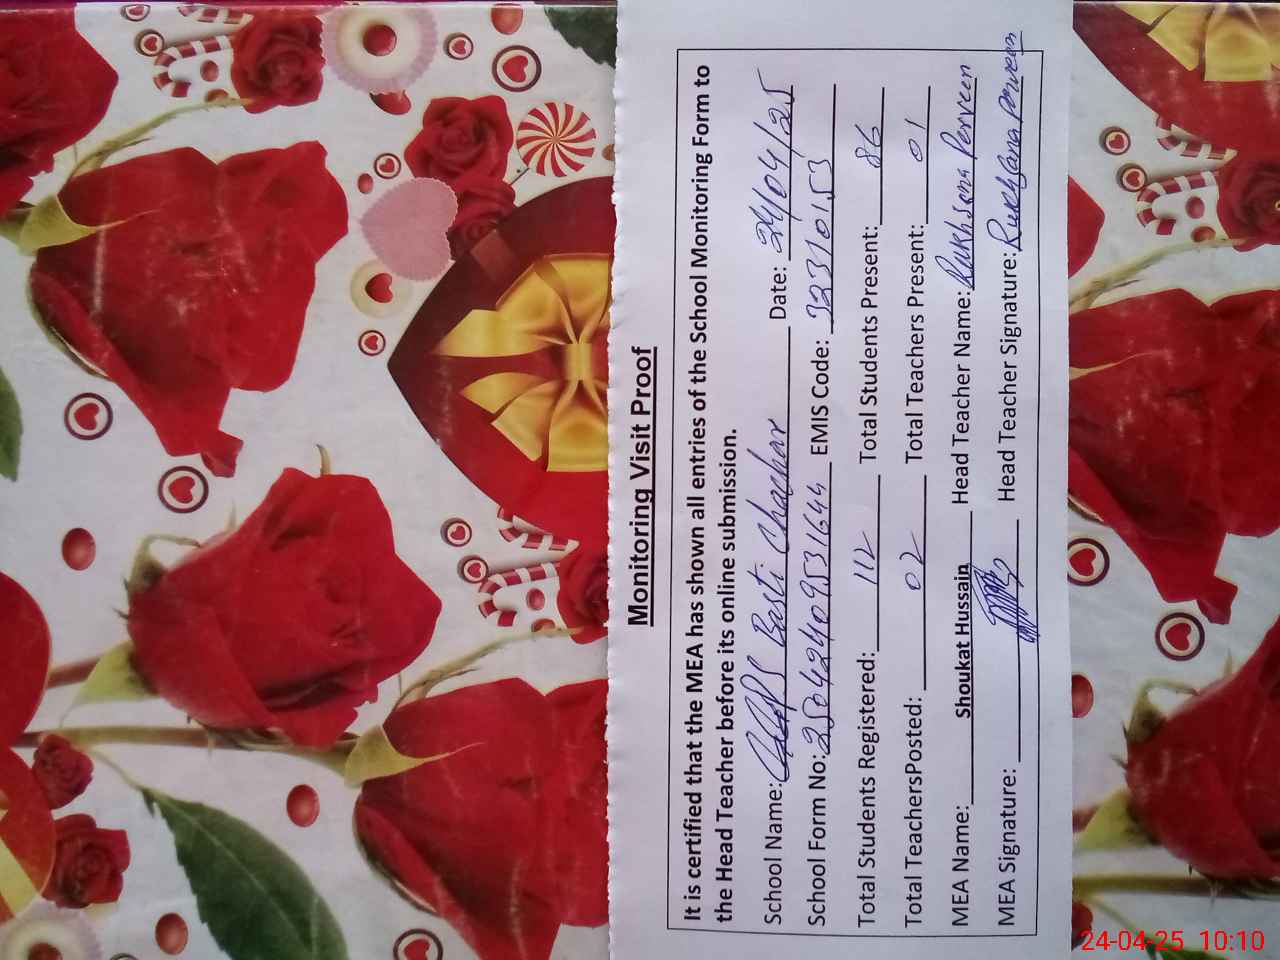 Monitoring Visit Proof
It is certified that the MEA has shown all entries of the School Monitoring Form to
the Head Teacher before its online submission.
School Name: GGPS Basti Chachar Date: 24/04/25
School Form No: 25042409531644 EMIS Code: 32310153
Total Students Registered: 112 Total Students Present: 86
Total TeachersPosted: 02 Total Teachers Present: 01
MEA Name: Shoukat Hussain Head Teacher Name: Rukhsana Perveen
MEA Signature: Head Teacher Signature: Rukhsana Parveen
24-04-25 10:10